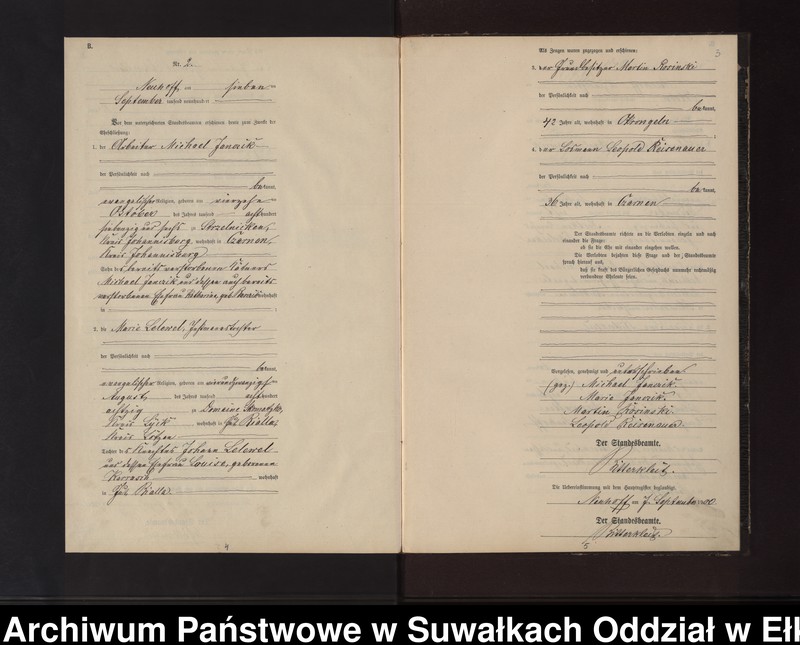 B.
Nr. 2.
Neuhoff, am sieben
September tausend neunhundert
Vor dem unterzeichneten Standesbeamten erschienen heute zum Zwecke der
Eheschließung:
1. der Arbeiter Michael Janczik
der Persönlichkeit nach
be kannt,
evangelischer Religion, geboren am vierzehn
October des Jahres tausend acht hundert
siebenzig und sechs zu Strzelnicken,
Kreis Johannisburg, wohnhaft in Czernen,
Kreis Johannisburg
Sohn des bereits verstorbenen
Michael Janczik und dessen auch bereits
verstorbenen Ehefrau Katharine, geb. wohnhaft
in
2. die Marie Lelewel, Instmannstochter
der Persönlichkeit nach
be kannt,
evangelischer Religion, geboren am vierundzwanzigst
August des Jahres tausend acht hundert
achtzig zu Domaine
Kreis Lyck wohnhaft in Gut Rialla,
Kreis Lötzen
Tochter des Knechtes Johann Lelewel
und dessen Ehefrau Louise, geborenen
wohnhaft
in Gut Rialla
4
Als Zeugen waren zugezogen und erschienen:
3
3. der Grundbesitzer Martin Rosinski
der Persönlichkeit nach
be kannt,
42 Jahre alt, wohnhaft in
4. der Losmann Leopold Reisenauer
der Persönlichkeit nach
be kannt,
36 Jahre alt, wohnhaft in Czernen
Der Standesbeamte richtete an die Verlobten einzeln und nach
einander die Frage:
ob sie die Ehe mit einander eingehen wollen.
Die Verlobten bejahten diese Frage und der Standesbeamte
sprach hierauf aus,
daß sie kraft des Bürgerlichen Gesetzbuchs nunmehr rechtmäßig
verbundene Eheleute seien.
Vorgelesen, genehmigt und unterschrieben
(gez.) Michael Janczik.
Maria Janczik.
Martin Rosinski.
Leopold Reisenauer.
Der Standesbeamte.
Die Uebereinstimmung mit dem Hauptregister beglaubigt.
Neuhoff, am 7. September 1900
Der Standesbeamte.
5
Archiwum Państwowe w Suwałkach Oddział w Ełk